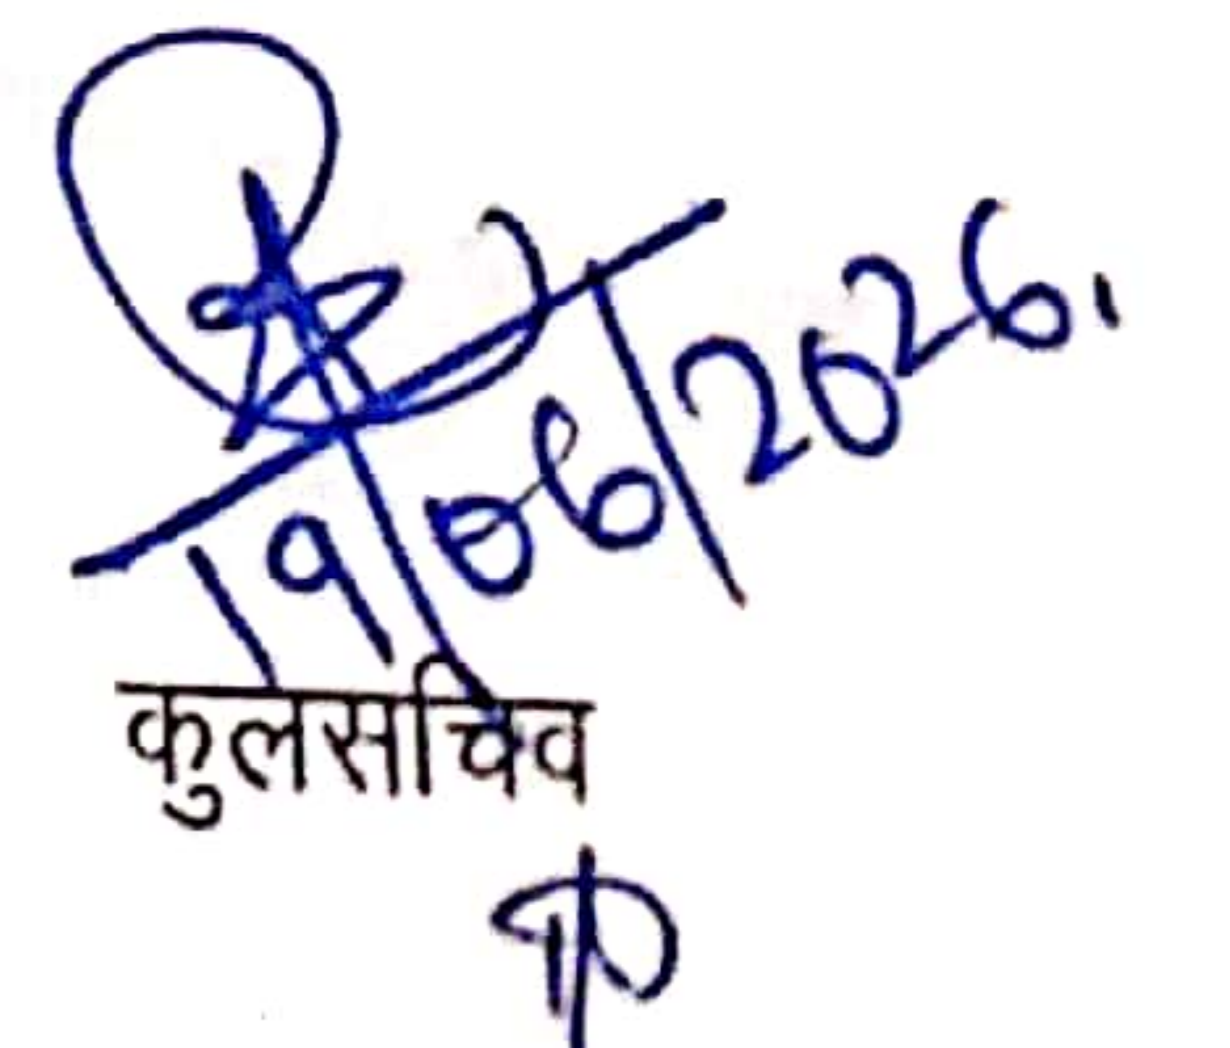 19/06/2026.
कुलसचिव